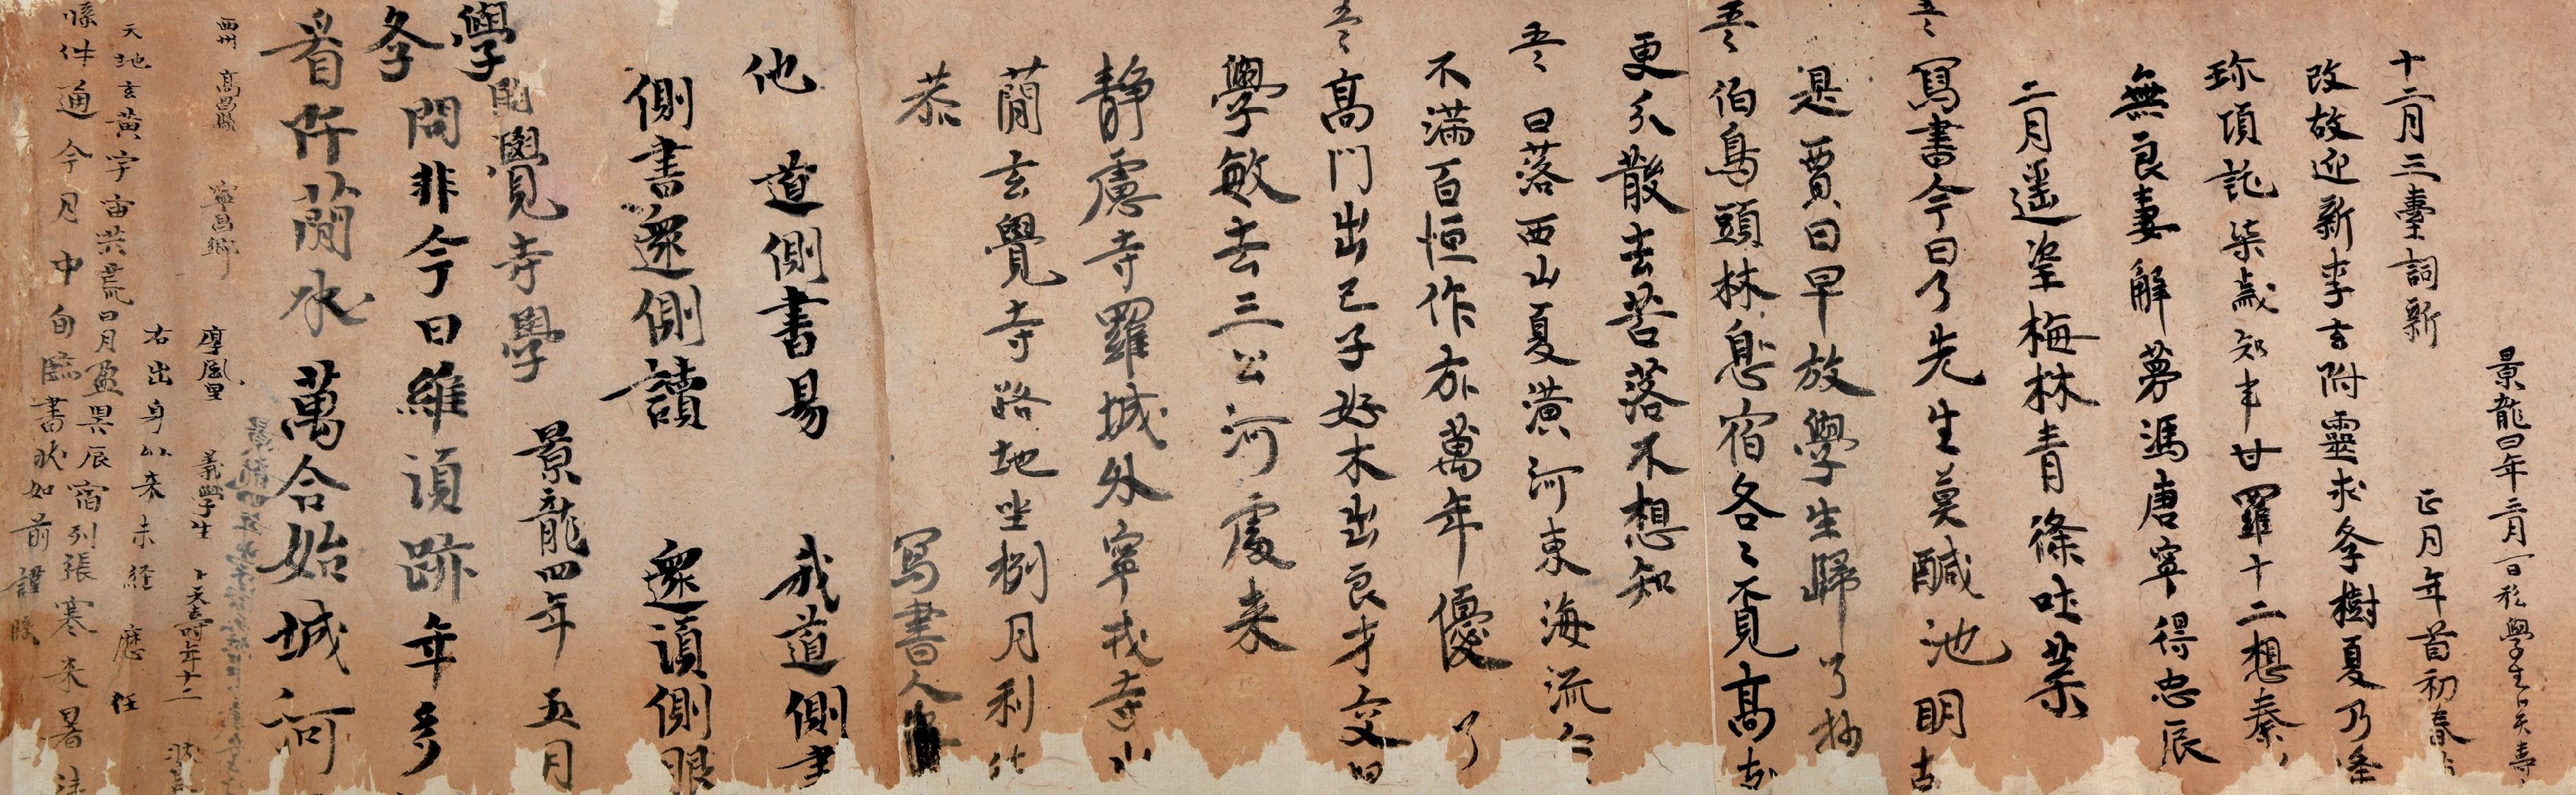 景龍四年三月一日私學生卜天壽
十二月三臺詞新 正月年首初春
改故迎新李玄附靈求學樹夏乃逢
珎項託柒歲知事甘羅十二想秦
無良妻解夢馮唐寧得忠辰
二月遥望梅林青條吐葉
寫書今日了先生莫醎池明
是賈日早放學生歸 了抄
伯鳥頭林息宿各〻覓高
更分散去苦落不想知
日落西山夏潢河東海流
不滿百恒作万萬年優 了
高門出己子好木出良才交
學敏去三公河處来
静慮寺羅城外寧戎寺
蕳玄覺寺路地坐捌月利
恭 寫書人
他道側書易 我道側書
側書還側讀 還須側眼
學開覺寺學 景龍四年五月
學問非今日維須跡年多
看阡蕳水萬合始城河
西州 高昌縣 寧昌鄉 厚風里 義學生 卜天壽年十二 狀具
右出身以来未經應任
天地玄黄宇宙洪荒日月盈昃辰宿列張寒来暑
縣件通今月中旬臨書狀如前謹牒